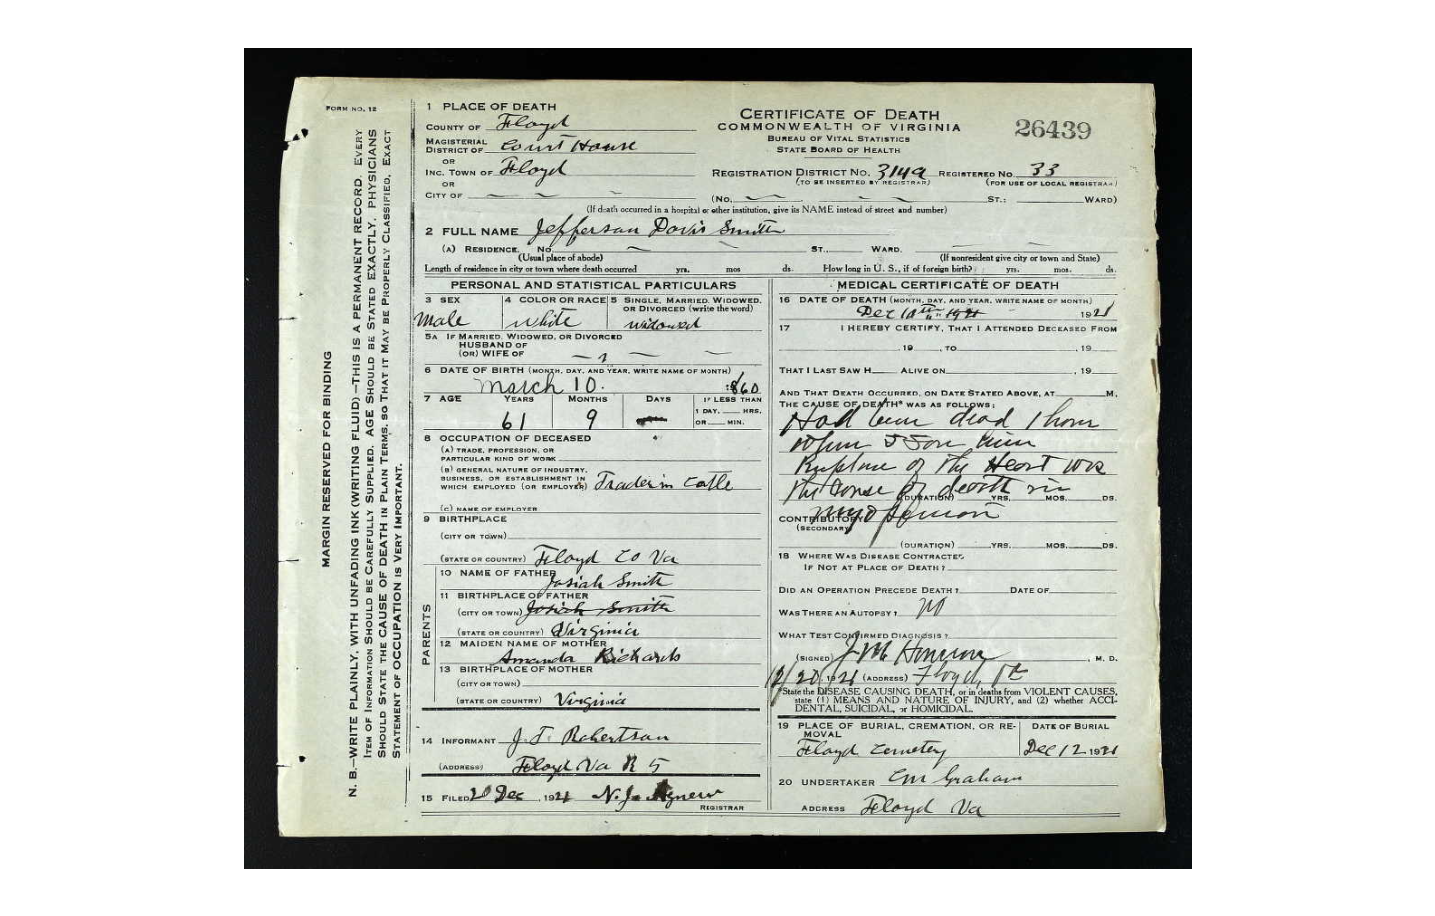 FORM NO. 12
MARGIN RESERVED FOR BINDING
N. B.—WRITE PLAINLY, WITH UNFADING INK (WRITING FLUID)—THIS IS A PERMANENT RECORD. EVERY
ITEM OF INFORMATION SHOULD BE CAREFULLY SUPPLIED. AGE SHOULD BE STATED EXACTLY. PHYSICIANS
SHOULD STATE THE CAUSE OF DEATH IN PLAIN TERMS, SO THAT IT MAY BE PROPERLY CLASSIFIED. EXACT
STATEMENT OF OCCUPATION IS VERY IMPORTANT.
CERTIFICATE OF DEATH
COMMONWEALTH OF VIRGINIA
BUREAU OF VITAL STATISTICS
STATE BOARD OF HEALTH
26439
1 PLACE OF DEATH
COUNTY OF Floyd
MAGISTERIAL DISTRICT OF Court House
OR
INC. TOWN OF Floyd
OR
CITY OF
REGISTRATION DISTRICT NO. 314a REGISTERED NO. 33
(TO BE INSERTED BY REGISTRAR) (FOR USE OF LOCAL REGISTRAR)
(No. ST.: WARD)
(If death occurred in a hospital or other institution, give its NAME instead of street and number)
2 FULL NAME Jefferson Davis Smith
(A) RESIDENCE. No. ST., WARD.
(Usual place of abode) (If nonresident give city or town and State)
Length of residence in city or town where death occurred yrs. mos ds. How long in U. S., if of foreign birth? yrs. mos. ds.
PERSONAL AND STATISTICAL PARTICULARS
3 SEX 4 COLOR OR RACE 5 SINGLE, MARRIED, WIDOWED, OR DIVORCED (write the word)
Male White Widowed
5A IF MARRIED, WIDOWED, OR DIVORCED
HUSBAND OF
(OR) WIFE OF
6 DATE OF BIRTH (MONTH, DAY, AND YEAR, WRITE NAME OF MONTH)
March 10. 1860
7 AGE YEARS MONTHS DAYS IF LESS THAN
1 DAY, HRS.
OR MIN.
61 9
8 OCCUPATION OF DECEASED
(A) TRADE, PROFESSION, OR
PARTICULAR KIND OF WORK
(B) GENERAL NATURE OF INDUSTRY,
BUSINESS, OR ESTABLISHMENT IN
WHICH EMPLOYED (OR EMPLOYER) Trader in Catle
(C) NAME OF EMPLOYER
9 BIRTHPLACE
(CITY OR TOWN)
(STATE OR COUNTRY) Floyd Co Va
PARENTS
10 NAME OF FATHER Josiah Smith
11 BIRTHPLACE OF FATHER
(CITY OR TOWN) Josiah Smith
(STATE OR COUNTRY) Virginia
12 MAIDEN NAME OF MOTHER
Amanda Richards
13 BIRTHPLACE OF MOTHER
(CITY OR TOWN)
(STATE OR COUNTRY) Virginia
14 INFORMANT J. T. Robertson
(ADDRESS) Floyd Va R 5
15 FILED 20 Dec, 1921 N. J. Agnew
REGISTRAR
MEDICAL CERTIFICATE OF DEATH
16 DATE OF DEATH (MONTH, DAY, AND YEAR, WRITE NAME OF MONTH)
Dec 10th 1921 1921
17 I HEREBY CERTIFY, THAT I ATTENDED DECEASED FROM
, 19 , TO , 19
THAT I LAST SAW H ALIVE ON , 19
AND THAT DEATH OCCURRED, ON DATE STATED ABOVE, AT M.
THE CAUSE OF DEATH* WAS AS FOLLOWS:
Had been dead 1 hour
When I him
Rupture of the Heart was
the Couse of death in
(DURATION) YRS. MOS. DS.
CONTRIBUTORY my opinion
(SECONDARY)
(DURATION) YRS. MOS. DS.
18 WHERE WAS DISEASE CONTRACTED
IF NOT AT PLACE OF DEATH?
DID AN OPERATION PRECEDE DEATH? DATE OF
WAS THERE AN AUTOPSY? no
WHAT TEST CONFIRMED DIAGNOSIS?
(SIGNED) J M , M. D.
12/20, 1921 (ADDRESS) Floyd,
*State the DISEASE CAUSING DEATH, or in deaths from VIOLENT CAUSES,
state (1) MEANS AND NATURE OF INJURY, and (2) whether ACCI-
DENTAL, SUICIDAL, or HOMICIDAL.
19 PLACE OF BURIAL, CREMATION, OR RE-
MOVAL DATE OF BURIAL
Floyd Cemetery Dec 12 1921
20 UNDERTAKER C M Graham
ADDRESS Floyd Va